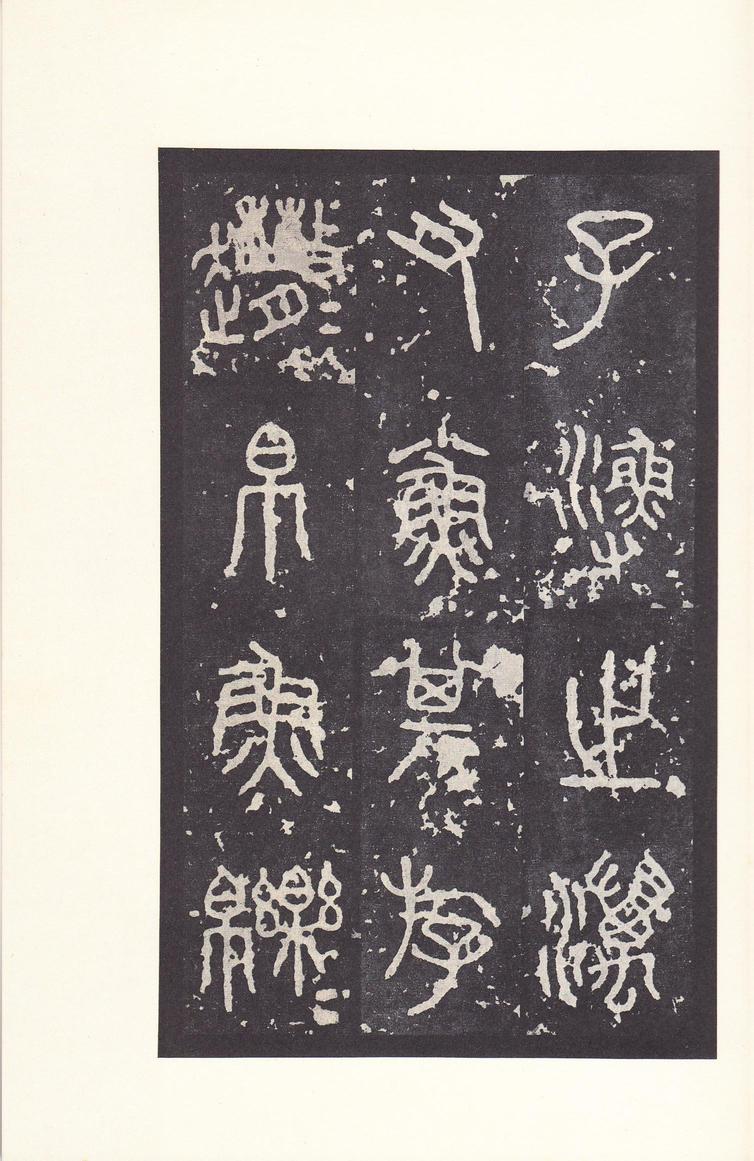 子漁之澫
又小魚其斿
帛魚